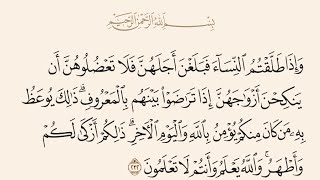 بِسْمِ اللَّهِ الرَّحْمَٰنِ الرَّحِيمِ
وَإِذَا طَلَّقْتُمُ النِّسَاءَ فَبَلَغْنَ أَجَلَهُنَّ فَلَا تَعْضُلُوهُنَّ أَن
يَنكِحْنَ أَزْوَاجَهُنَّ إِذَا تَرَاضَوْا بَيْنَهُم بِالْمَعْرُوفِ ۗ ذَٰلِكَ يُوعَظُ
بِهِ مَن كَانَ مِنكُمْ يُؤْمِنُ بِاللَّهِ وَالْيَوْمِ الْآخِرِ ۗ ذَٰلِكُمْ أَزْكَىٰ لَكُمْ
وَأَطْهَرُ ۗ وَاللَّهُ يَعْلَمُ وَأَنتُمْ لَا تَعْلَمُونَ ٢٣٢